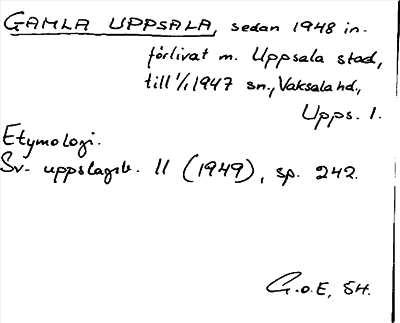 GAMLA UPPSALA, sedan 1948 in-
förlivat m. Uppsala stad,
till 1/1 1947 sn., Vaksala hd.,
Upps. l.
Etymologi.
Sv. uppslagsb. 11 (1949), sp. 242.
G.o.E, SH.